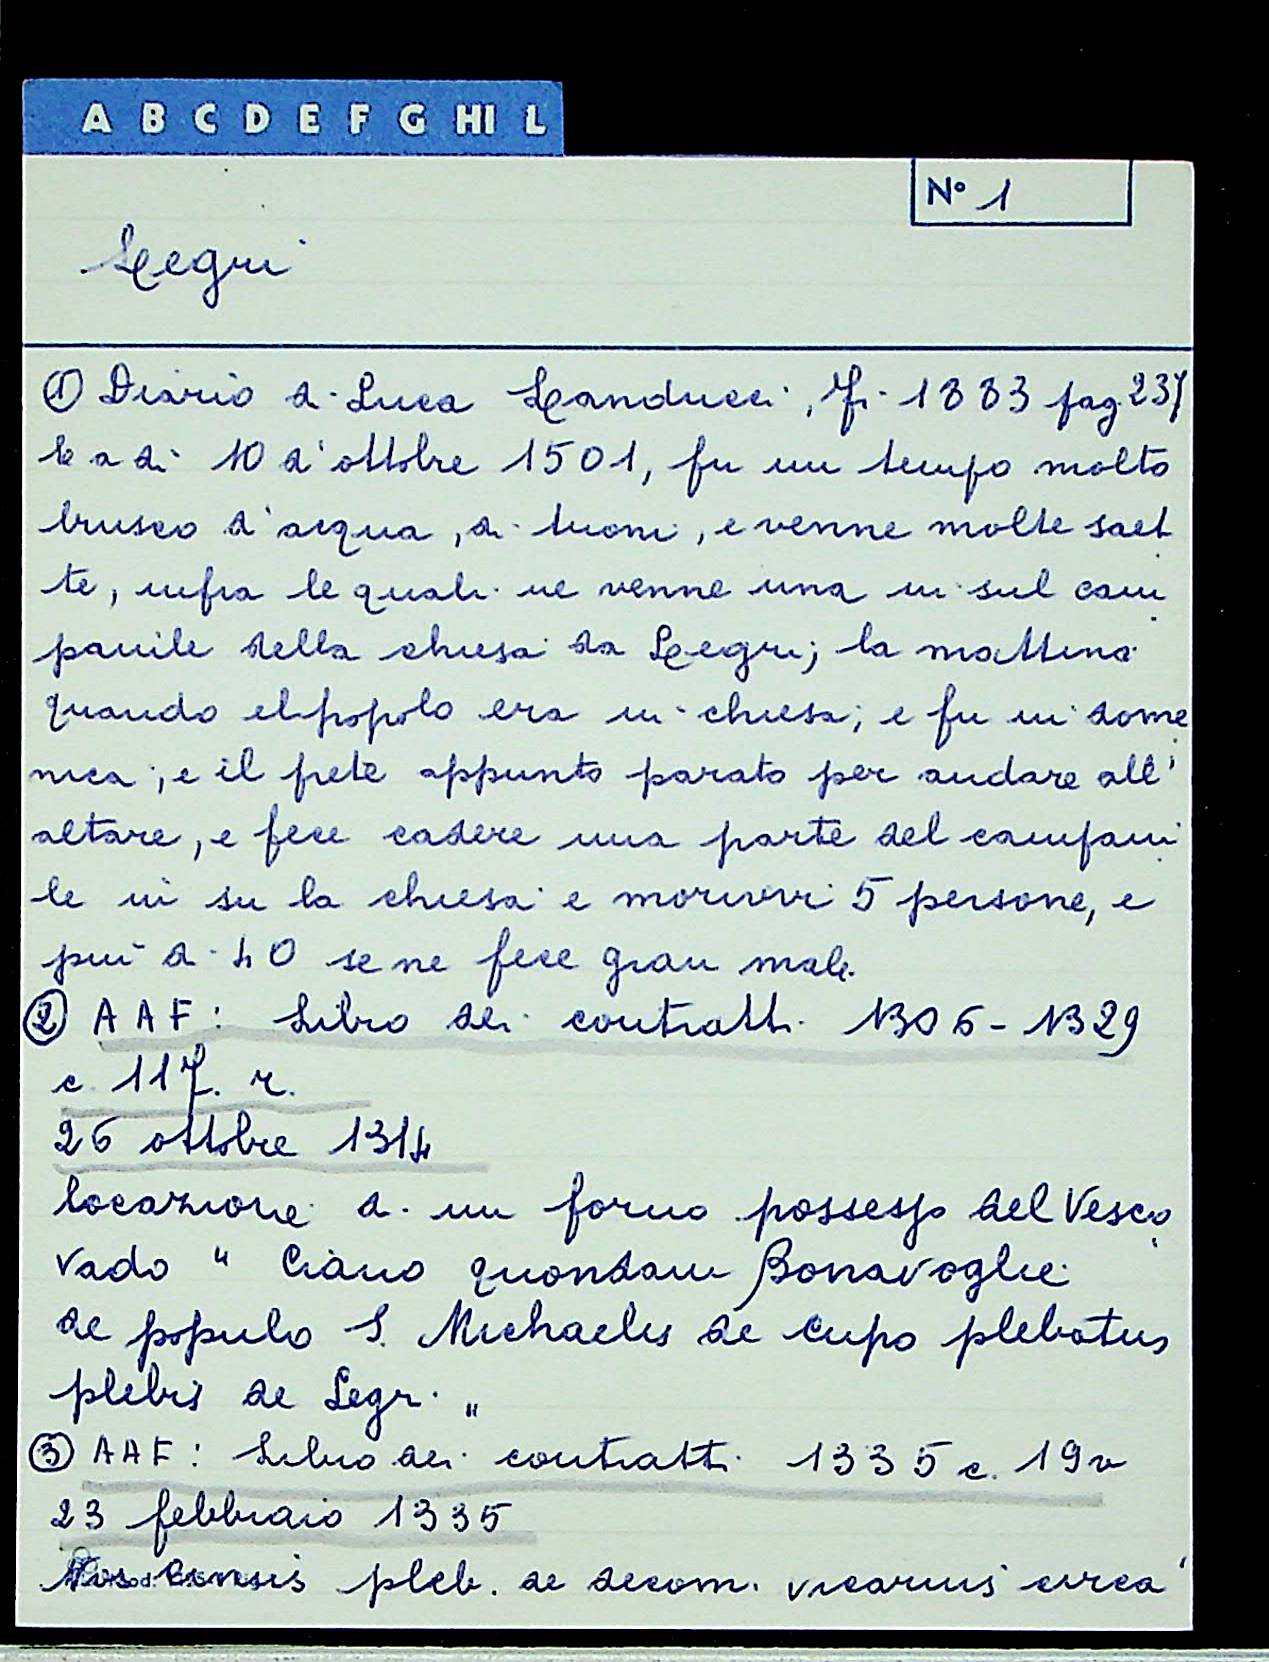 A B C D E F G HI L
N° 1
Legri
① Diario di Luca Landucci, Fi. 1883 pag. 237
E a dì 10 d'ottobre 1501, fu un tempo molto
brusco d'acqua, di tuoni, e venne molte saet
te, infra le quali ne venne una in sul cam
panile della chiesa da Legri; la mattina
quando el popolo era in chiesa; e fu in dome
nica; e il prete appunto parato per andare all'
altare, e fece cadere una parte del campani
le in su la chiesa e morivvi 5 persone, e
più di 40 se ne fece gran male.
② AAF: Libro dei contratti 1306-1329
c. 117. r.
26 ottobre 1314
locazione di un forno possesso del Vesco
vado " Ciano quondam Bonavoglie
de populo S. Michaelis de Cupo plebatus
plebis de Legri "
③ AAF: Libro dei contratti 1335 c. 19v
23 febbraio 1335
pleb. de decom. vicarius circa